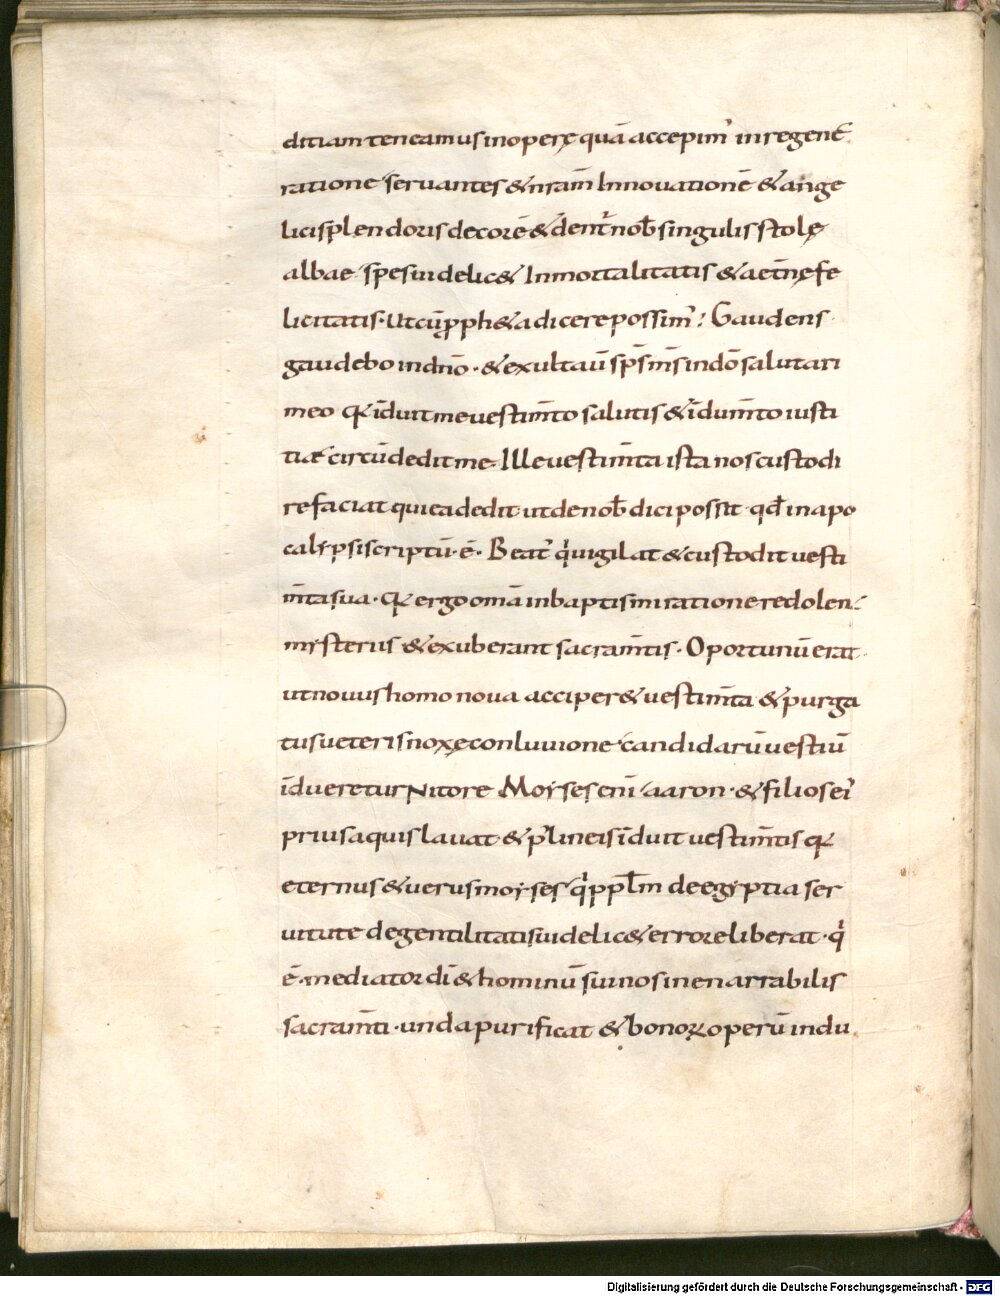 ditiam teneamus in operę quā accepim᾿ in regenE
ratione servantes & nr̄am Innovationē & ange
lici splendoris decorē & dent̄ nob̄ singulis stolę
albae spes videlic& Inmortalitatis & aet̄nę fe
licitatis. Ut cū ̄pph&a dicere possim᾿; Gaudens
gaudebo in dn̄o. & exultav̄ sps̄ ms̄ in dō salutari
meo qr īduit me vestim̄to salutis & īdum̄to iusti
tiæ circūdedit me. Ille vestim̄ta ista nos custodi
re faciat qui ea dedit ut de nob̄ dici possit qd̄ in apo
calypsi scriptū. ē. Beat᾿ q̄ vigilat & custodit vesti
m̄ta sua. Qr ergo om̄a in baptismi ratione redolen
mysteriis & exuberant sacram̄tis. Oportunū erat
ut novus homo nova acciper& vestim̄ta & purga
tus veteris noxę conluvione candidarū vestiū
īdueretur Nitore Moyses enī aaron. & filios ei᾿
prius aquis lavat & p᾿ lineis īduit vestim̄tis qr
eternus & verus moyses q̄ ppl̄m de egyptia ser
vitute de gentilitatis videlic& errore liberat. q̄
ē. mediator dī & hominū sui nos inenarrabilis
sacram̄ti. unda purificat & bonoꝝ operū indu